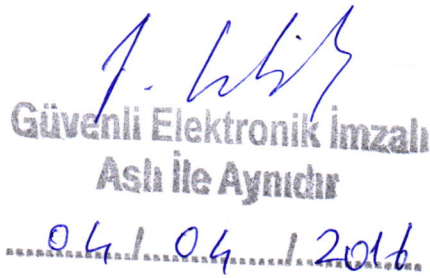 Güvenli Elektronik İmzalı
Aslı İle Aynıdır
04/04/2016